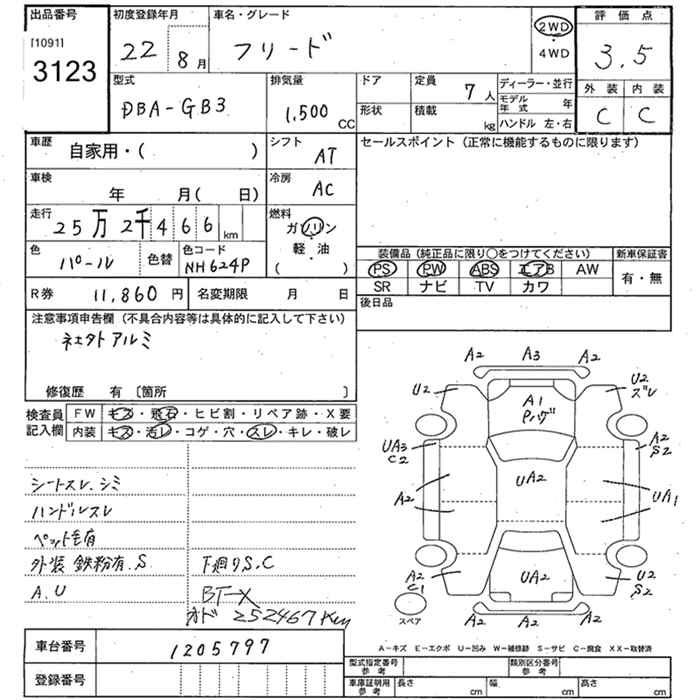 出品番号 初度登録年月 車名・グレード 評価点
[1091]
3123
22年 8月 フリード 2WD・4WD 3.5
型式 排気量 ドア 定員 ディーラー・並行 外装 内装
DBA-GB3 1,500 CC 7人 モデル年式 年 C C
形状 積載 kg ハンドル 左・右
車歴 シフト セールスポイント (正常に機能するものに限ります)
自家用・( ) AT
車検 冷房
年 月( 日) AC
走行 燃料
25万2千466km ガソリン・軽・油 ( )
色 色替 色コード 装備品 (純正品に限り○をつけてください) 新車保証書
パール NH624P PS PW ABS エアB AW 有・無
SR ナビ TV カワ
R券 11,860円 名変期限 月 日 後日品
注意事項申告欄 (不具合内容等は具体的に記入して下さい)
修復歴 有 〔箇所 〕
検査員 FW キズ・飛石・ヒビ割・リペア跡・X要
記入欄 内装 キズ・汚レ・コゲ・穴・スレ・キレ・破レ
シートスレ、シミ
ハンドルスレ
ペット毛有
外装 鉄粉有、S 下廻りS、C
A、U BT-X
オド 252467Km
A2 A3 A2
U2 A1 Pハゲ U2 ズレ
UA3 C2 A2 S2
A2 UA2 UA1
A2 C1 UA2 U2 S2
A2 A2 A2
スペア
A-キズ E-エクボ U-凹み W-補修跡 S-サビ C-腐食 XX-取替済
車台番号 1205797
登録番号 型式指定番号 参考 類別区分番号 参考
車庫証明用 参考 長さ cm 幅 cm 高さ cm